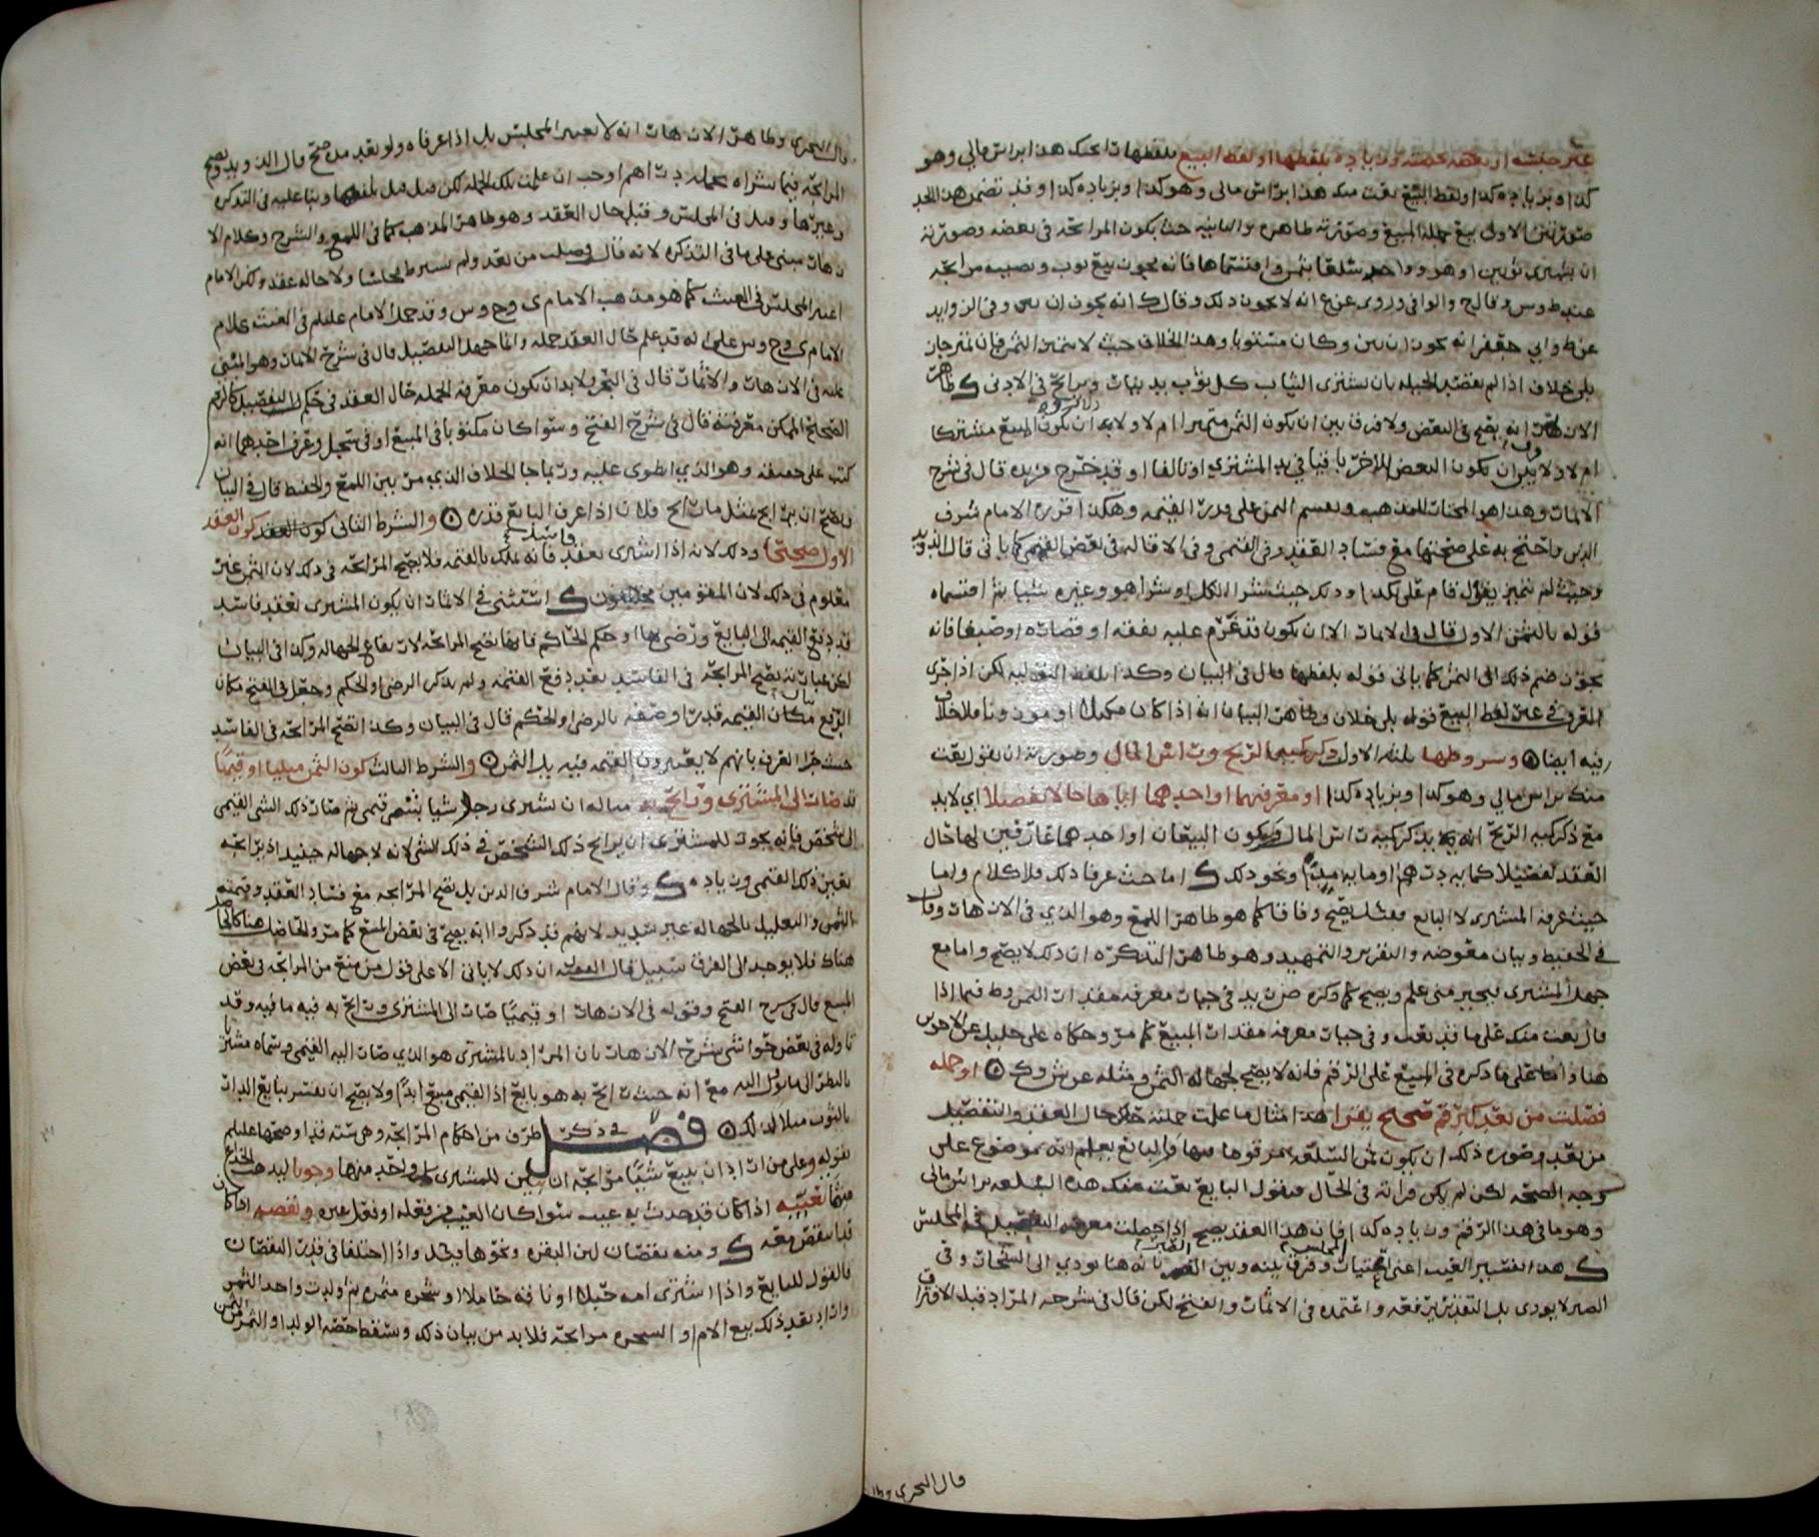 غير جنسه او بعضه بحصته وزيادة بلفظها او لفظ البيع فلفظها رابحتك هذا براس مالي وهو
كذا وبزيادة كذا ولفظ البيع بعت منك هذا براس مالي وهو كذا وبزيادة كذا وقد تضمن هذا الحد
صورتين الاولى بيع جملة المبيع وصورته ظاهرة والثانية حيث يكون المرابحة في بعضه وصورته
ان يشتري ثوبين او هو وواحد سلعا بثمن واقتسماها فانه يجوز بيع ثوب ونصيبه مرابحة
عند ط وس وقال ح والوافي وروي عن ع انه لا يجوز ذلك وقال ك انه يجوز ان وفي الزوايد
عن ط وابي جعفر انه يجوز ان وكان مستويا وهذا الخلاف حيث لا يتميز الثمن فان تميز جاز
بلى خلاف اذا لم يقصد الحيلة بان يشتري الثياب كل ثوب بدينار ويرابح في الادنى ك ظاهر
الازهار انه يصح في البعض ولا فرق بين ان يكون الثمن متميزا ام لا ولا بد ان يكون المبيع مشتركا
ام لا ولا بين ان يكون البعض الاخر باقيا في يد المشتري او تالفا او قد خرج من يده قال في شرح
الاثمار وهذا هو المختار للمذهب ويقسم الثمن على قدر القيمة وهكذا قرره الامام شرف
الدين واحتج به على صحتها مع فساد العقد وفي القيمي وفي الاقالة في بعض القيمي كما ياتي قال الدويد
وحيث لم تميز يقول قام علي بكذا وذلك حيث شرا الكل او شرا هو وغيره شيئا ثم اقتسماه
قوله بالثمن الاول قال في الاثمار الا ان يكون قد غرم عليه نفقة او قصارة او صبغا فانه
يجوز ضم ذلك الى الثمن كما ياتي قوله بلفظها قال في البيان وكذا بلفظ التولية لكن اذا جرى
العرف في غير لفظ البيع قوله بلى خلاف وظاهر البيان انه اذا كان مكيلا او موزونا فلا خلاف
فيه ايضا ۞ وشروطها ثلثة الاول ذكر كمية الربح وراس المال وصورته ان يقول بعت
منك براس مالي وهو كذا وبزيادة كذا او معرفتهما او احدهما اياها حالا تفصيلا اي لا بد
مع ذكر كمية الربح يذكر كمية راس المال او يكون البيعان او احدهما عارفين لها حال
العقد تفصيلا كماية درهم او ماية مد ونحو ذلك ك اما حيث عرفا ذلك فلا كلام واما
حيث عرفه المشتري لا البايع فقال يصح وفاقا كما هو ظاهر اللمع وهو الذي في الازهار وقال
في الحفيظ وبيان معوضه والتقرير والتمهيد وهو ظاهر التذكرة ان ذلك لا يصح واما مع
جهل المشتري فيخير متى علم ويصح كما ذكره ض زيد في خيار معرفة مقدار الثمن وط فيما اذا
قال بعت منك على ما قد بعت وفي خيار معرفة مقدار المبيع كما مر وحكاه علي خليل عن الاخوين
هنا واما على ما ذكره في المبيع على الرقم فانه لا يصح لجهالة الثمن ومثله عن ش وك ۞ او جملة
فصلت من بعد كبرقم صحيح يقرا هذا مثال ما علمت جملته حال العقد والتفصيل
من بعد وصورة ذلك ان يكون ثمن السلعة مرقوما فيها والبايع يعلم انه موضوع على
وجه الصحة لكن لم يكن قراته في الحال فيقول البايع بعت منك هذه السلعة براس مالي
وهو ما في هذا الرقم وزيادة كذا فان هذا العقد يصح اذا حصلت معرفة التفصيل في المجلس
ك هذا تفسير الغيث اعني اعتبار المجلس وفرق بينه وبين الصبرة بانه هنا يودي الى الشجار وفي
الصبر لا يودي بل التفسير يرفعه واعتمده في الاثمار والفتح لكن قال في شرحه المراد قبل الافتراق
قال البحري وظا
قال البحري وظاهر الازهار انه لا يعتبر المجلس بل اذا عرفاه ولو بعد مدة صح قال الدويد ويصح
المرابحة فيما شراه بجملة دراهم اوجب ان علمت تلك الجملة لكن قبل قبل لفظها وبنا عليه في التذكرة
وغيرها وقيل في المجلس وقبل حال العقد وهو ظاهر المذهب كما في اللمع والشرح وكلام الاز
هار مبني على ما في التذكرة لانه قال فصلت من بعد ولم يشرط مجلسا ولا حالة عقد ولكن الامام
اعتبر المجلس في الغيث كما هو مذهب الامام ي وح وس وقد حمل الامام عليلم في الغيث كلام
الامام ي وح وس على انه قد علم حال العقد جملة وانما جهلا التفصيل قال في شرح الاثمار وهو المبني
عليه في الازهار والاثمار قال في البحر ولا بد ان يكون معرفة الجملة حال العقد في حكم التفصيل كالرقم
الصحيح الممكن معرفته قال في شرح الفتح وسوا كان مكتوبا في المبيع او في سجل وعرف احدهما انه
كتب على حقيقته وهو الذي انطوى عليه وربما جا الخلاف الذي مر بين اللمع والحفيظ قال في البيان
ويصح ان يرابح بمثل ما رابح فلانا اذا عرف البايع قدره ۞ والشرط الثاني كون العقد
الاول صحيحا وذلك لانه اذا اشترى بعقد فاسد فانه يملك بالقيمة فلا يصح المرابحة في ذلك لان الثمن غير
معلوم في ذلك لان المقومين مختلفون ك استثنى في الاثمار ان يكون المشتري بعقد فاسد
قد دفع القيمة الى البايع ورضي بها او حكم الحاكم فانها تصح المرابحة لارتفاع الجهالة وكذا في البيان
لكن عبارته تصح المرابحة في الفاسد بعد دفع القيمة ولم يذكر الرضى او الحكم وجعل في الفتح مكان
الدفع مكان القيمة قدرا وصفة بالرضى او الحكم قال في البيان وكذا تصح المرابحة في الفاسد
حيث جرا العرف بانهم لا يعتبرون القيمة فيه بل الثمن ۞ والشرط الثالث كون الثمن مثليا او قيميا
قد صار الى المشتري ورابح به مثاله ان يشتري رجل شيا بشي قيمي ثم صار ذلك الشي القيمي
الى شخص فانه يجوز للمشتري ان يرابح ذلك الشخص في ذلك الشي لانه لا جهالة حينيذ اذ يرابحه
بعين ذلك القيمي وزيادة ك وقال الامام شرف الدين بل تصح المرابحة مع فساد العقد وقيمية
الثمن والتعليل بالجهالة غير سديد لانهم قد ذكروا انه يصح في بعض المبيع كما مر والحاصل هنا كالحاصل
هناك فلا يوجد الى الفرق سبيل قال ان ذلك لا ياتي الا على قول من منع من المرابحة في بعض
المبيع قال في شرح الفتح وقوله في الازهار او قيميا صار الى المشتري ورابح به فيه ما فيه وقد
تاوله في بعض حواشي شرح الازهار بان المراد بالمشتري هو الذي صار اليه القيمي وسماه مشتريا
بالنظر الى ما يول اليه مع انه حيث رابح به هو بايع اذ القيمي مبيع ابدا ولا يصح ان يفسر ببايع الدار
بالثوب مثلا لذلك ۞ فصل في ذكر طرف من احكام المرابحة وهي ستة قد اوضحها عليلم
بقوله وعلى من اراد ان يبيع شيئا مرابحة ان يبين للمشتري كل واحد منها وجوبا ليذهب الخداع
منها تعيبه اذا كان قد حدث به عيب سوا كان العيب من فعله او فعل غيره ونقصه اذا كان
قد انتقص معه ك ومنه نقصان لبن البقرة ونحوها واذا اختلفا في قدر النقصان
فالقول للبايع واذا اشترى امة حبلا او ناقة حاملا او شجرة مثمرة ثم ولدت واخذ الثمر
واراد بعد ذلك بيع الام او الشجرة مرابحة فلا بد من بيان ذلك ويسقط حصة الولد او الثمر من الثمن